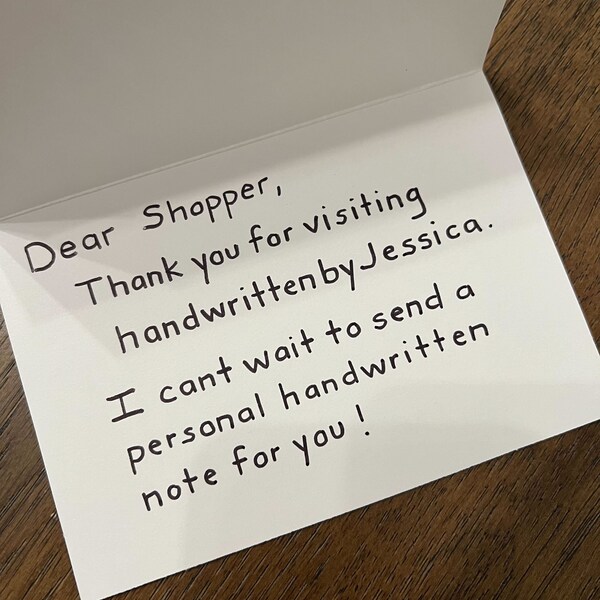 Dear Shopper,
Thank you for visiting
handwrittenbyJessica.
I cant wait to send a
personal handwritten
note for you!